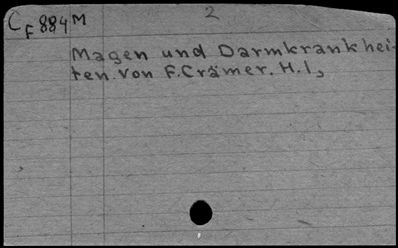 CF 884 M 2
Magen und Darmkrankhei-
ten. Von F. Crämer. H. 1,